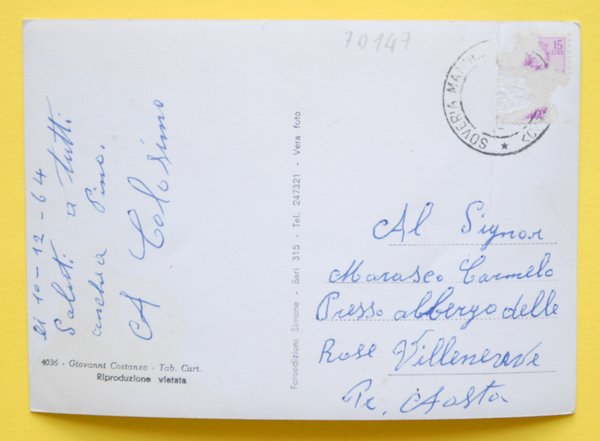 70147
15
SOVERIA MANN
li 10-12-64
Saluti a tutti
anchra Pino.
A Colosimo
4036 - Giovanni Costanzo - Tab. Cart.
Riproduzione vietata
Fotoedizioni Simone - Bari 315 - Tel. 247321 - Vera foto
Al Signor
Marasco Carmelo
Presso abbergo delle
Rose Villeneuve
Pr. Aosta